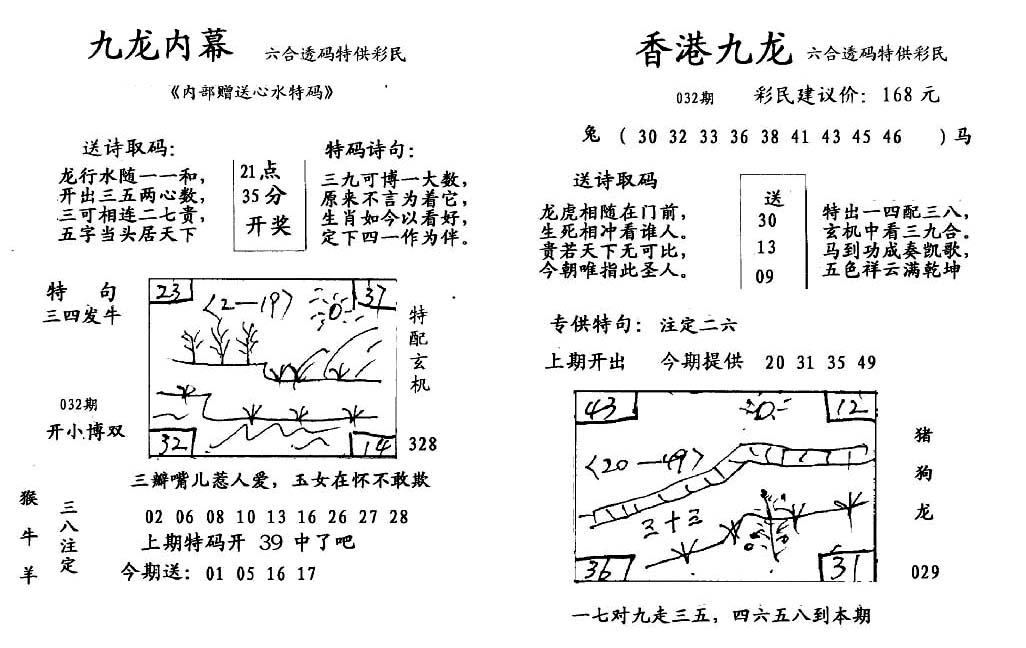 九龙内幕 六合透码特供彩民
《内部赠送心水特码》
送诗取码：
龙行水随一一和，
开出三五两心数，
三可相连二七贵，
五字当头居天下
21点
35分
开奖
特码诗句：
三九可博一大数，
原来不言为着它，
生肖如今以看好，
定下四一作为伴。
特 句
三四发牛
032期
开小博双
23
〈2—19〉
37
32
14
特配玄机
328
三瓣嘴儿惹人爱，玉女在怀不敢欺
猴牛羊
三八注定
02 06 08 10 13 16 26 27 28
上期特码开 39 中了吧
今期送：01 05 16 17
香港九龙 六合透码特供彩民
032期 彩民建议价：168元
兔（30 32 33 36 38 41 43 45 46 ）马
送诗取码
龙虎相随在门前，
生死相冲看谁人。
贵若天下无可比，
今朝唯指此圣人。
送
30
13
09
特出一四配三八，
玄机中看三九合。
马到功成奏凯歌，
五色祥云满乾坤
专供特句：注定二六
上期开出 今期提供 20 31 35 49
43
12
〈20—49〉
三十三
36
31
猪狗龙
029
一七对九走三五，四六五八到本期